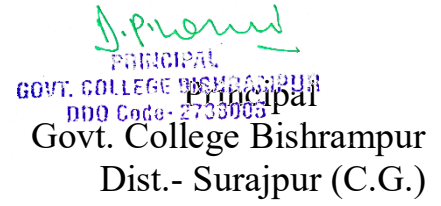 PRINCIPAL
GOVT. COLLEGE BISHRAMPUR
DDO Code- 2738005
Principal
Govt. College Bishrampur
Dist.- Surajpur (C.G.)